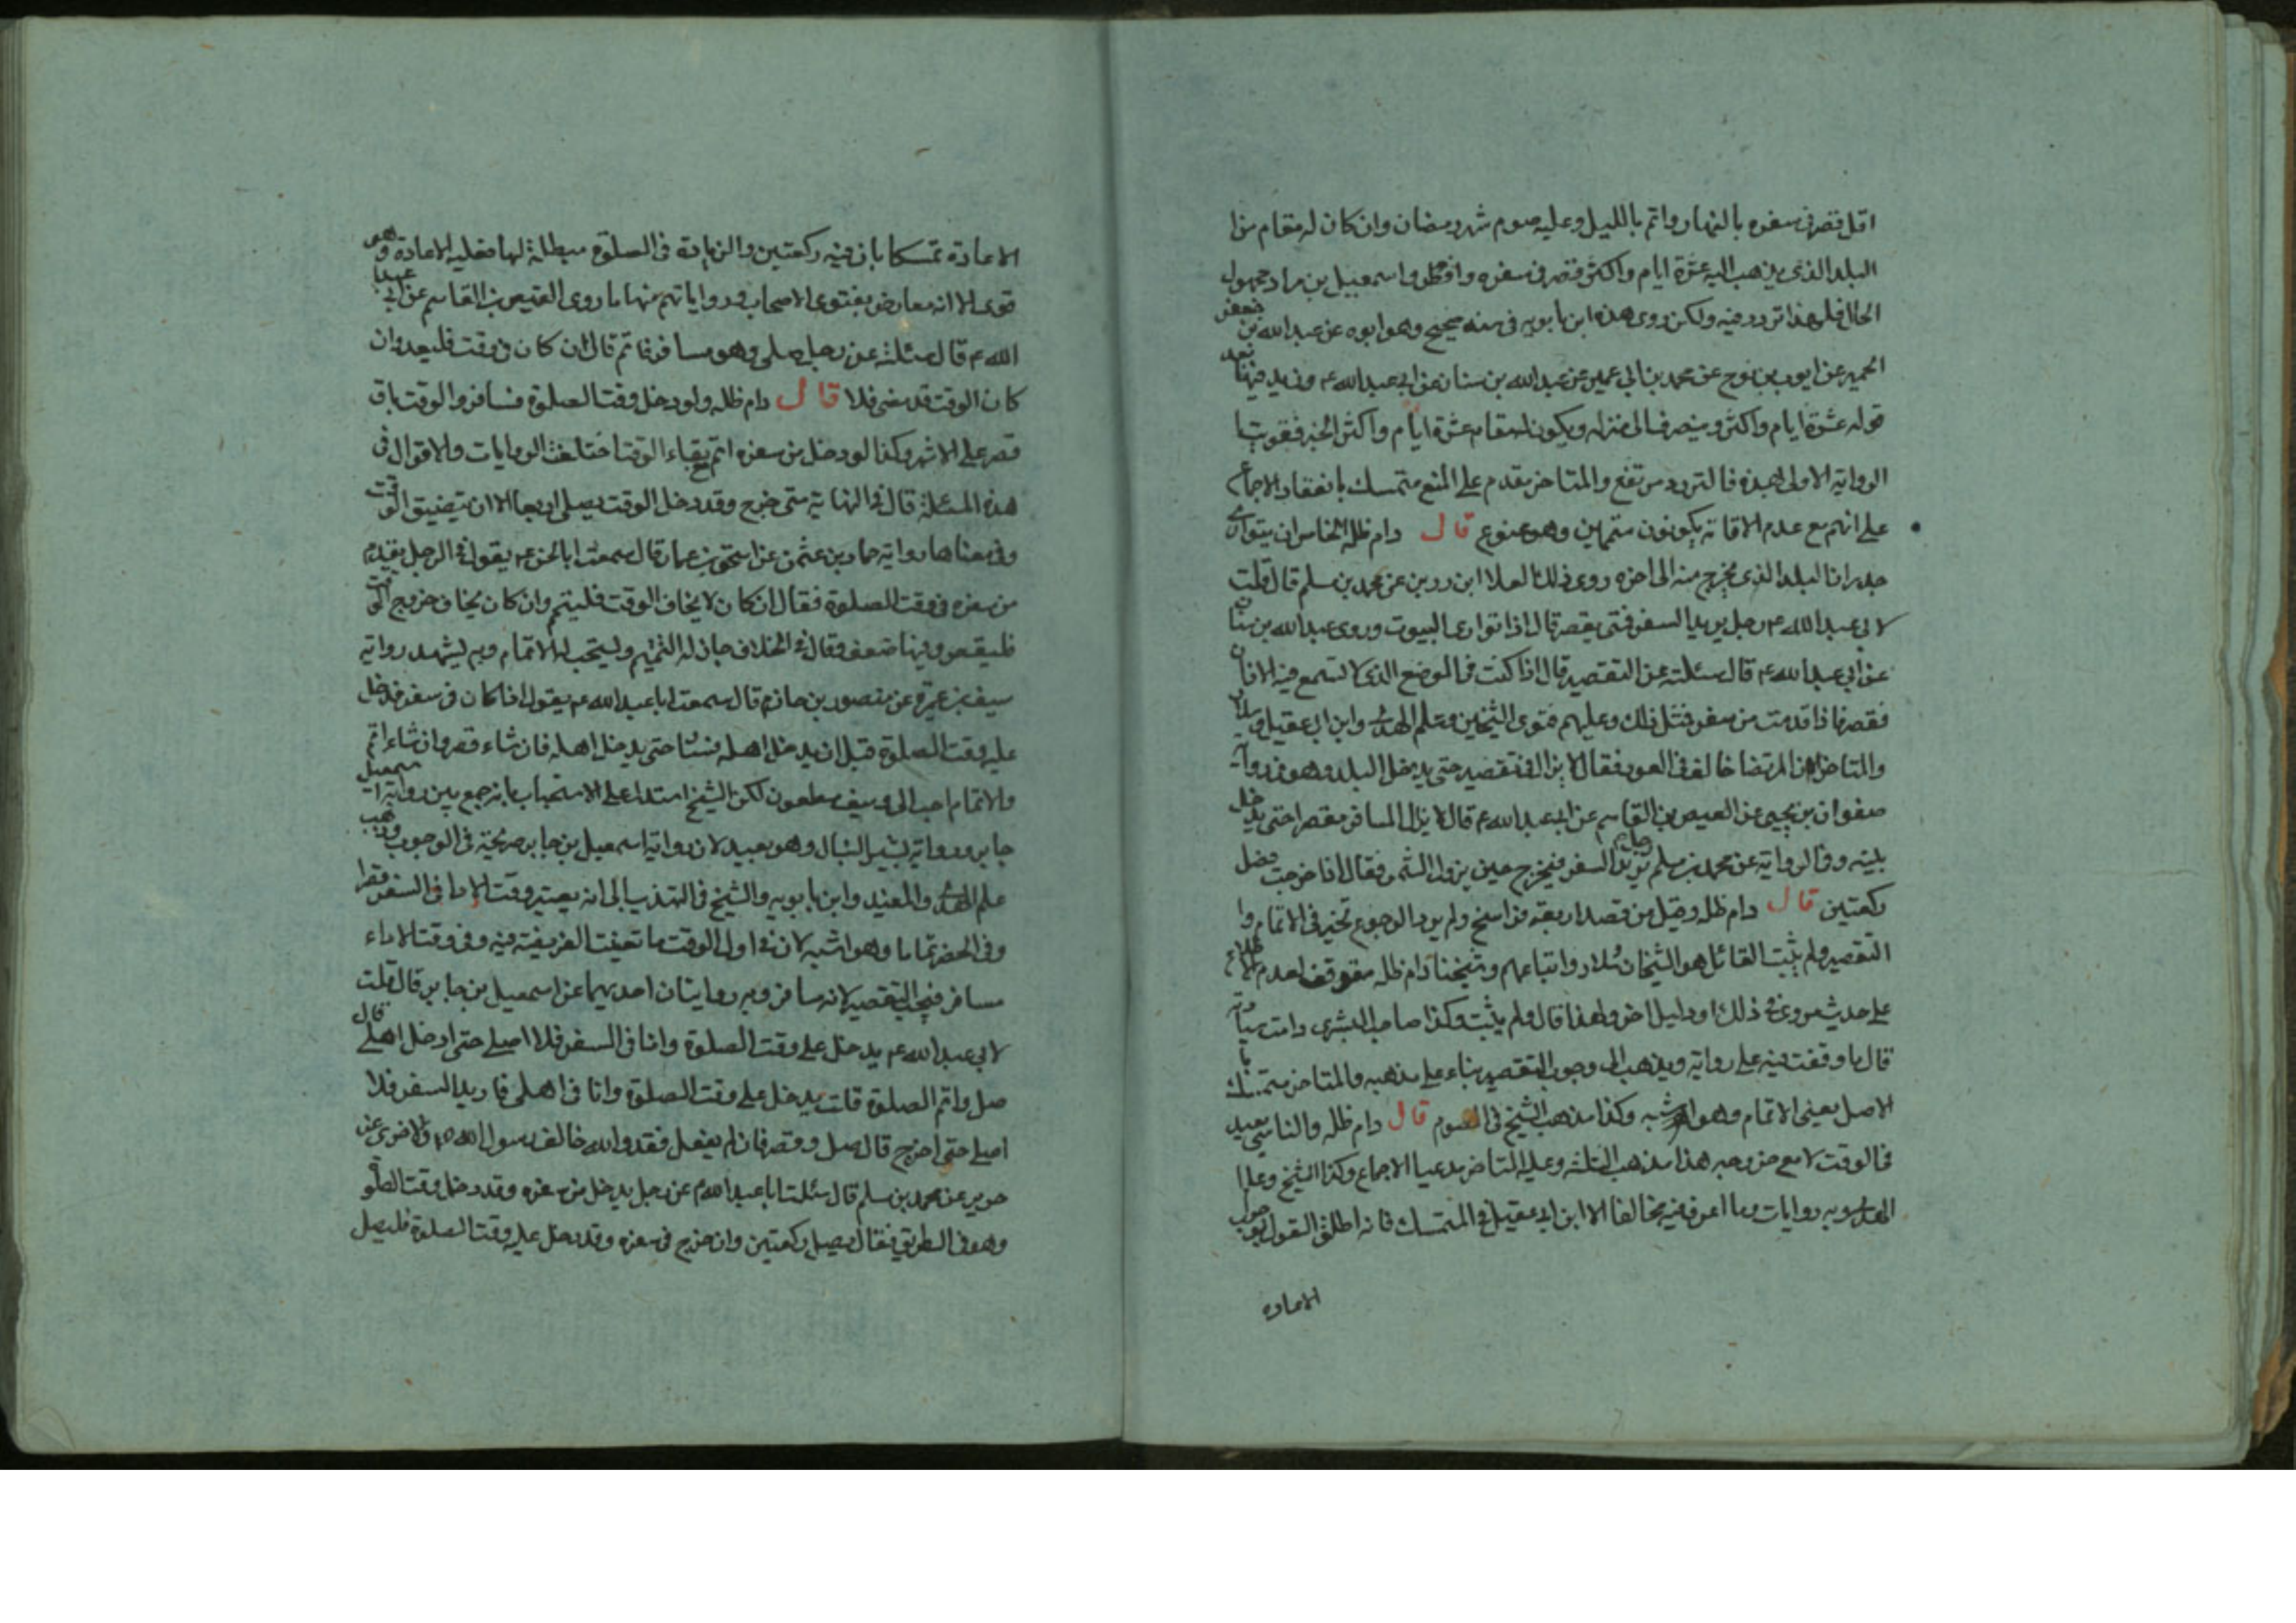 اقل قصر فى سفره بالنهار واتم بالليل وعليه صوم شهر رمضان وان كان له مقام من
البلد الذى يذهب اليه عشرة ايام واكثر قصر فى سفره وافطر واسمعيل بن مراد مجهول
الحال فلهذا تردد فيه ولكن روى هذه ابن بابويه فى سند صحيح وهو ابوه عن عبد الله بن جعفر
الحميرى عن ايوب بن نوح عن محمد بن ابى عمير عن عبد الله بن سنان عن ابى عبد الله ع ويزيد فيها بعد
قوله عشرة ايام واكثر وينصرف الى منزله ويكون له مقام عشرة ايام واكثر الخبر فقويت
الرواية الاولى بهذه فالتردد مرتفع والمتاخر مقدم على المنع متمسك بانعقاد الاجماع
على انهم مع عدم الاقامة يكونون متممين وهو ممنوع قال دام ظله الخامس ان يتوارى
جدران البلد الذى يخرج منه الى اخره روى ذلك العلا ابن رزين عن محمد بن مسلم قال قلت
لابى عبد الله ع رجل يريد السفر فمتى يقصر قال اذا توارى البيوت وروى عبد الله بن سنان
عن ابى عبد الله ع قال سئلته عن التقصير قال اذا كنت فى الموضع الذى لا تسمع فيه الاذان
فقصر فاذا قدمت من سفر فمثل ذلك وعليهم فتوى الشيخين وعلم الهدى وابن ابى عقيل وسلار
والمتاخر لكن المرتضى خالف فى العود فقال لا يزال فى تقصير حتى يدخل البلد وهو فى رواية
صفوان بن يحيى عن العيص بن القاسم عن ابى عبد الله ع قال لا يزال المسافر مقصرا حتى يدخل
بيته وفى الرواية عن محمد بن مسلم رجل يريد السفر فيخرج حين يزول الشمس فقال اذا خرجت فصل
ركعتين قال دام ظله وقيل من قصد اربعة فراسخ ولم يرد الرجوع تخير فى الاتمام وا
التقصير ولم يثبت القائل هو الشيخان وسلار واتباعهم وشيخنا دام ظله متوقف لعدم اطلاع
على حديث مروى فى ذلك او دليل اخر ولهذا قال ولم يثبت وكذا صاحب البشرى دامت سيادته
قال ما وقفت فيه على رواية ويذهب الى وجوب التقصير بناء على مذهبه والمتاخر متمسك با
الاصل يعنى الاتمام وهو اشبه وكذا مذهب الشيخ فى الصوم قال دام ظله والناسى يعيد
فى الوقت لا مع خروجه هذا مذهب الثلثة وعليه المتاخر مدعيا الاجماع وكذا الشيخ وعلم
الهدى وبه روايات وما اعرف فيه مخالفا الا ابن ابى عقيل فى المتمسك فانه اطلق القول بوجوب
الاعاده
الاعادة تمسكا بان فيه ركعتين والزيادة فى الصلوة مبطلة لها فعليه الاعادة وهو
قوى الا انه معارض بفتوى الاصحاب ورواياتهم منها ما روى العيص بن القاسم عن ابى عبد
الله ع قال سئلته عن رجل صلى وهو مسافر فاتم قال ان كان فى وقت فليعد وان
كان الوقت قد مضى فلا قال دام ظله ولو دخل وقت الصلوة فسافر والوقت باق
قصر على الاشهر وكذا لو دخل من سفره اتم مع بقاء الوقت اختلفت الروايات والاقوال فى
هذه المسئلة قال فى النهاية متى خرج وقد دخل الوقت يصلى اربعا الا ان يتضيق الوقت
وفى معناها رواية حماد بن عثمن عن اسحق بن عمار قال سمعت ابا الحسن ع يقول فى الرجل يقدم
من سفره فى وقت الصلوة فقال ان كان لا يخاف الوقت فليتم وان كان يخاف خروج الوقت
فليقصر وفيها ضعف وقال فى الخلاف جاز له التتميم ويستحب له الاتمام وبه يشهد رواية
سيف بن عميرة عن منصور بن حازم قال سمعت ابا عبد الله ع يقول اذا كان فى سفر فدخل
عليه وقت الصلوة قبل ان يدخل اهله فسار حتى يدخل اهله فان شاء قصر وان شاء اتم
والاتمام احب الى وسيف مطعون لكن الشيخ استدل على الاستحباب بانه جمع بين رواية اسمعيل
جابر ورواية بشير النبال وهو بعيد لان رواية اسمعيل بن جابر صريحة فى الوجوب وذهب
علم الهدى والمفيد وابن بابويه والشيخ فى التهذيب الى انه يعتبر وقت الاداء فى السفر قصرا
وفى الحضر تماما وهو اشبه لان فى اول الوقت ما تعينت الفريضة فيه وفى وقت الاداء
مسافر فيجب التقصير لانه مسافر وبه روايتان احديهما عن اسمعيل بن جابر قال قلت
لابى عبد الله ع يدخل على وقت الصلوة وانا فى السفر فلا اصلى حتى ادخل اهلى قال
صل واتم الصلوة قلت يدخل على وقت الصلوة وانا فى اهلى فاريد السفر فلا
اصلى حتى اخرج قال صل وقصر فان لم يفعل فقد والله خالف رسول الله ص والاخرى عن
حريز عن محمد بن مسلم قال سئلت ابا عبد الله ع عن رجل يدخل من سفره وقد دخل وقت الصلو
وهو فى الطريق فقال يصلى ركعتين وان خرج فى سفره وقد دخل عليه وقت الصلوة فليصل